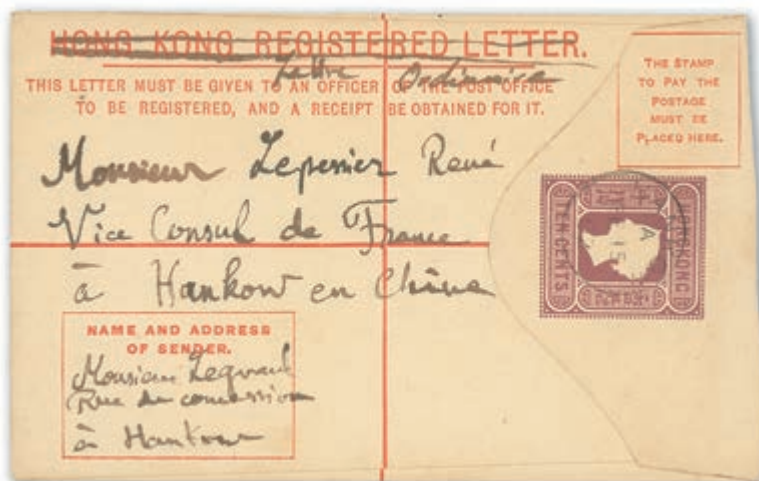 HONG KONG REGISTERED LETTER.
Lettre Ordinaire
THIS LETTER MUST BE GIVEN TO AN OFFICER OF THE POST OFFICE
TO BE REGISTERED, AND A RECEIPT BE OBTAINED FOR IT.
THE STAMP
TO PAY THE
POSTAGE
MUST BE
PLACED HERE.
Monsieur Lepessier René
Vice Consul de France
à Hankow en Chine
HONGKONG
TEN CENTS
A
NAME AND ADDRESS
OF SENDER.
Monsieur
Rue de concession
à Hankow